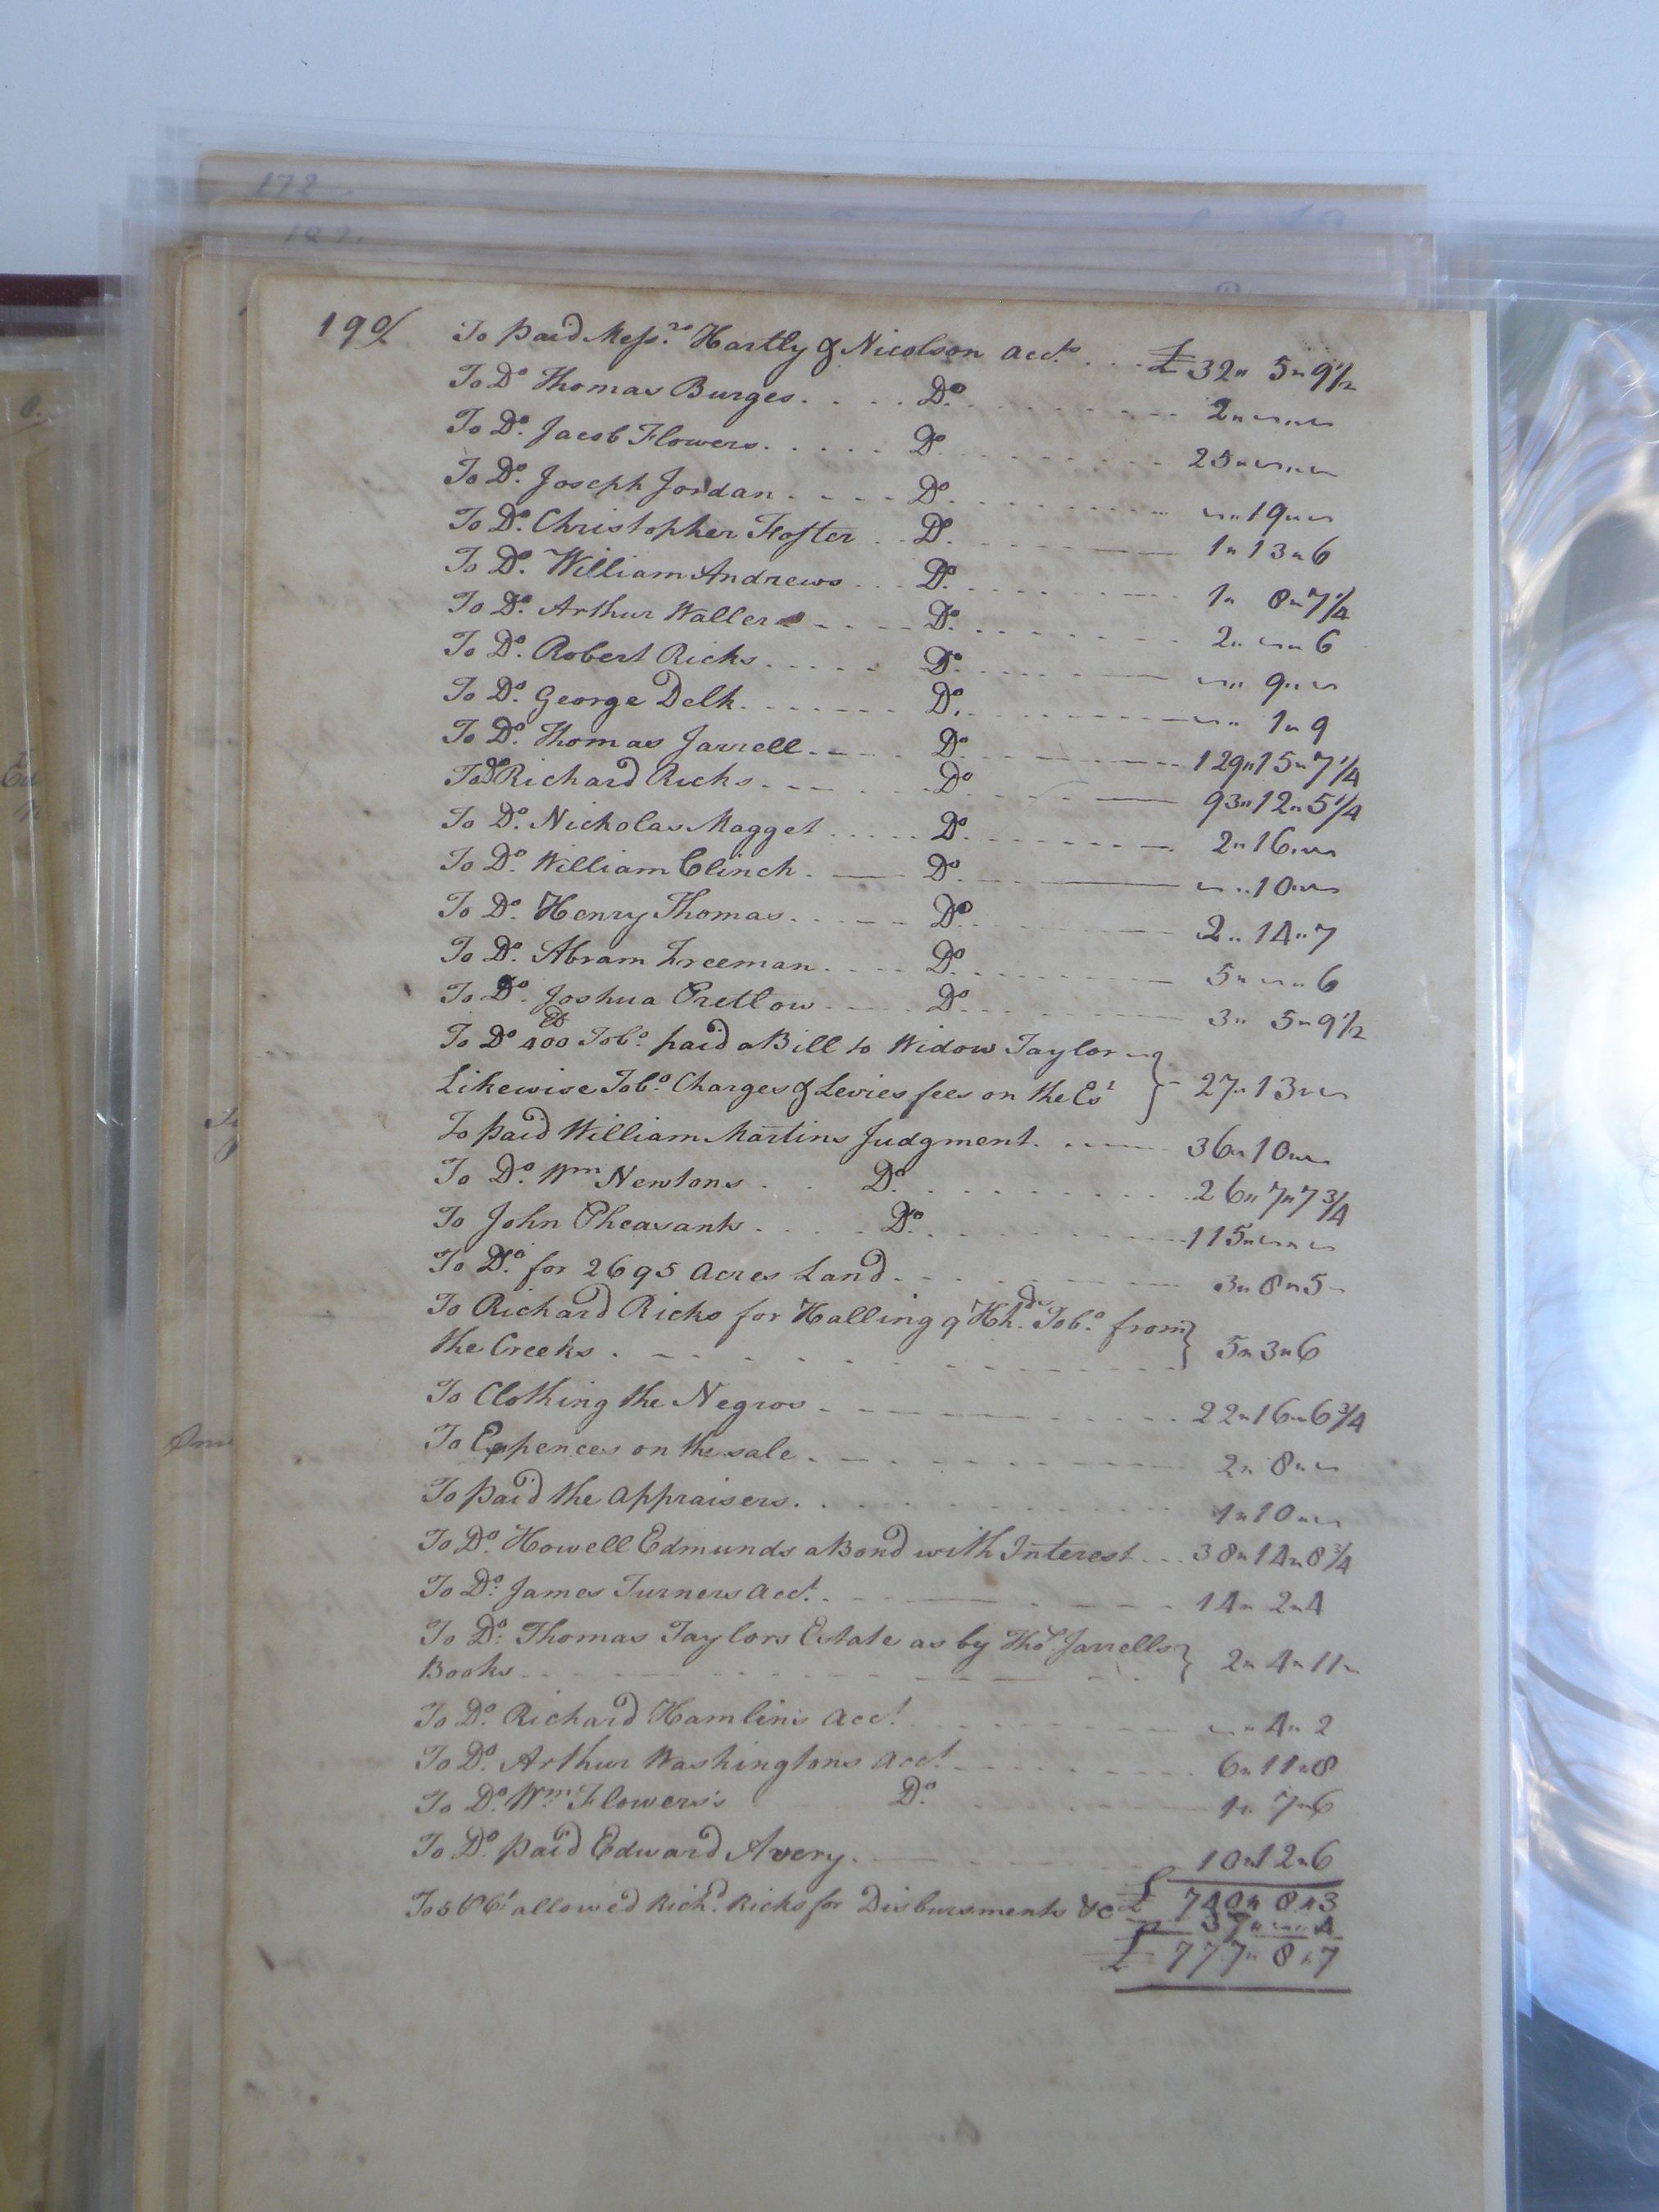 172
190/
To paid Messrs. Hartly & Nicolson Accts. . . . £ 32 " 5 " 9 1/2
To Do. Thomas Burges . . . . Do. . . . . 2 " — " —
To Do. Jacob Flowers . . . . . Do. . . . . 25 " — " —
To Do. Joseph Jordan . . . . Do. . . . . — " 19 " —
To Do. Christopher Foster . . Do. . . . . 1 " 13 " 6
To Do. William Andrews . . . Do. . . . . 1 " 8 " 7 1/4
To Do. Arthur Waller . . . . Do. . . . . 2 " — " 6
To Do. Robert Ricks . . . . . Do. . . . . — " 9 " —
To Do. George Delk . . . . . . Do. . . . . — " 1 " 9
To Do. Thomas Jarrell . . . . Do. . . . . 129 " 15 " 7 1/4
To Do. Richard Ricks . . . . . Do. . . . . 93 " 12 " 5 1/4
To Do. Nickolas Magget . . . . . Do. . . . . 2 " 16 " —
To Do. William Clinch . — Do. . . . . — " 10 " —
To Do. Henry Thomas . . . . Do. . . . . 2 " 14 " 7
To Do. Abram Freeman . . . . Do. . . . . 5 " — " 6
To Do. Joshua Pretlow . . . . Do. . . . . 3 " 5 " 9 1/2
To Do. 400 lb Tobo. paid a Bill to Widow Taylor }
Likewise Tobo. Charges & Levies fees on the Est } 27 " 13 " —
To paid William Martins Judgment . . . . 36 " 10 " —
To Do. Wm Newtons . . Do. . . . . 26 " 7 " 7 3/4
To John Pheasants . . . . Do. . . . . 115 " — " —
To Do. for 2695 Acres Land . . . . 3 " 8 " 5
To Richard Ricks for Halling 9 Hhds. Tobo. from }
the Creeks . . . . . } 5 " 3 " 6
To Clothing the Negros . . . . 22 " 16 " 6 3/4
To Expences on the sale . . . . 2 " 8 " —
To paid the Appraisers . . . . 1 " 10 " —
To Do. Howell Edmunds a Bond with Interest . . . 38 " 14 " 8 3/4
To Do. James Turners Acct. . . . . 14 " 2 " 4
To Do. Thomas Taylors Estate as by Thos. Jarrells }
Books . . . . . } 2 " 4 " 11
To Do. Richard Hamlins Acct. . . . . — " 4 " 2
To Do. Arthur Washingtons Acct. . . . . 6 " 11 " 8
To Do. Wm. Flowers's Do. . . . . 1 " 7 " 6
To Do. paid Edward Avery . . . . 10 " 12 " 6
£ 740 " 8 " 3
To 5 P Ct allowed Richd. Ricks for Disbursments &c 37 " — " 4
£ 777 " 8 " 7